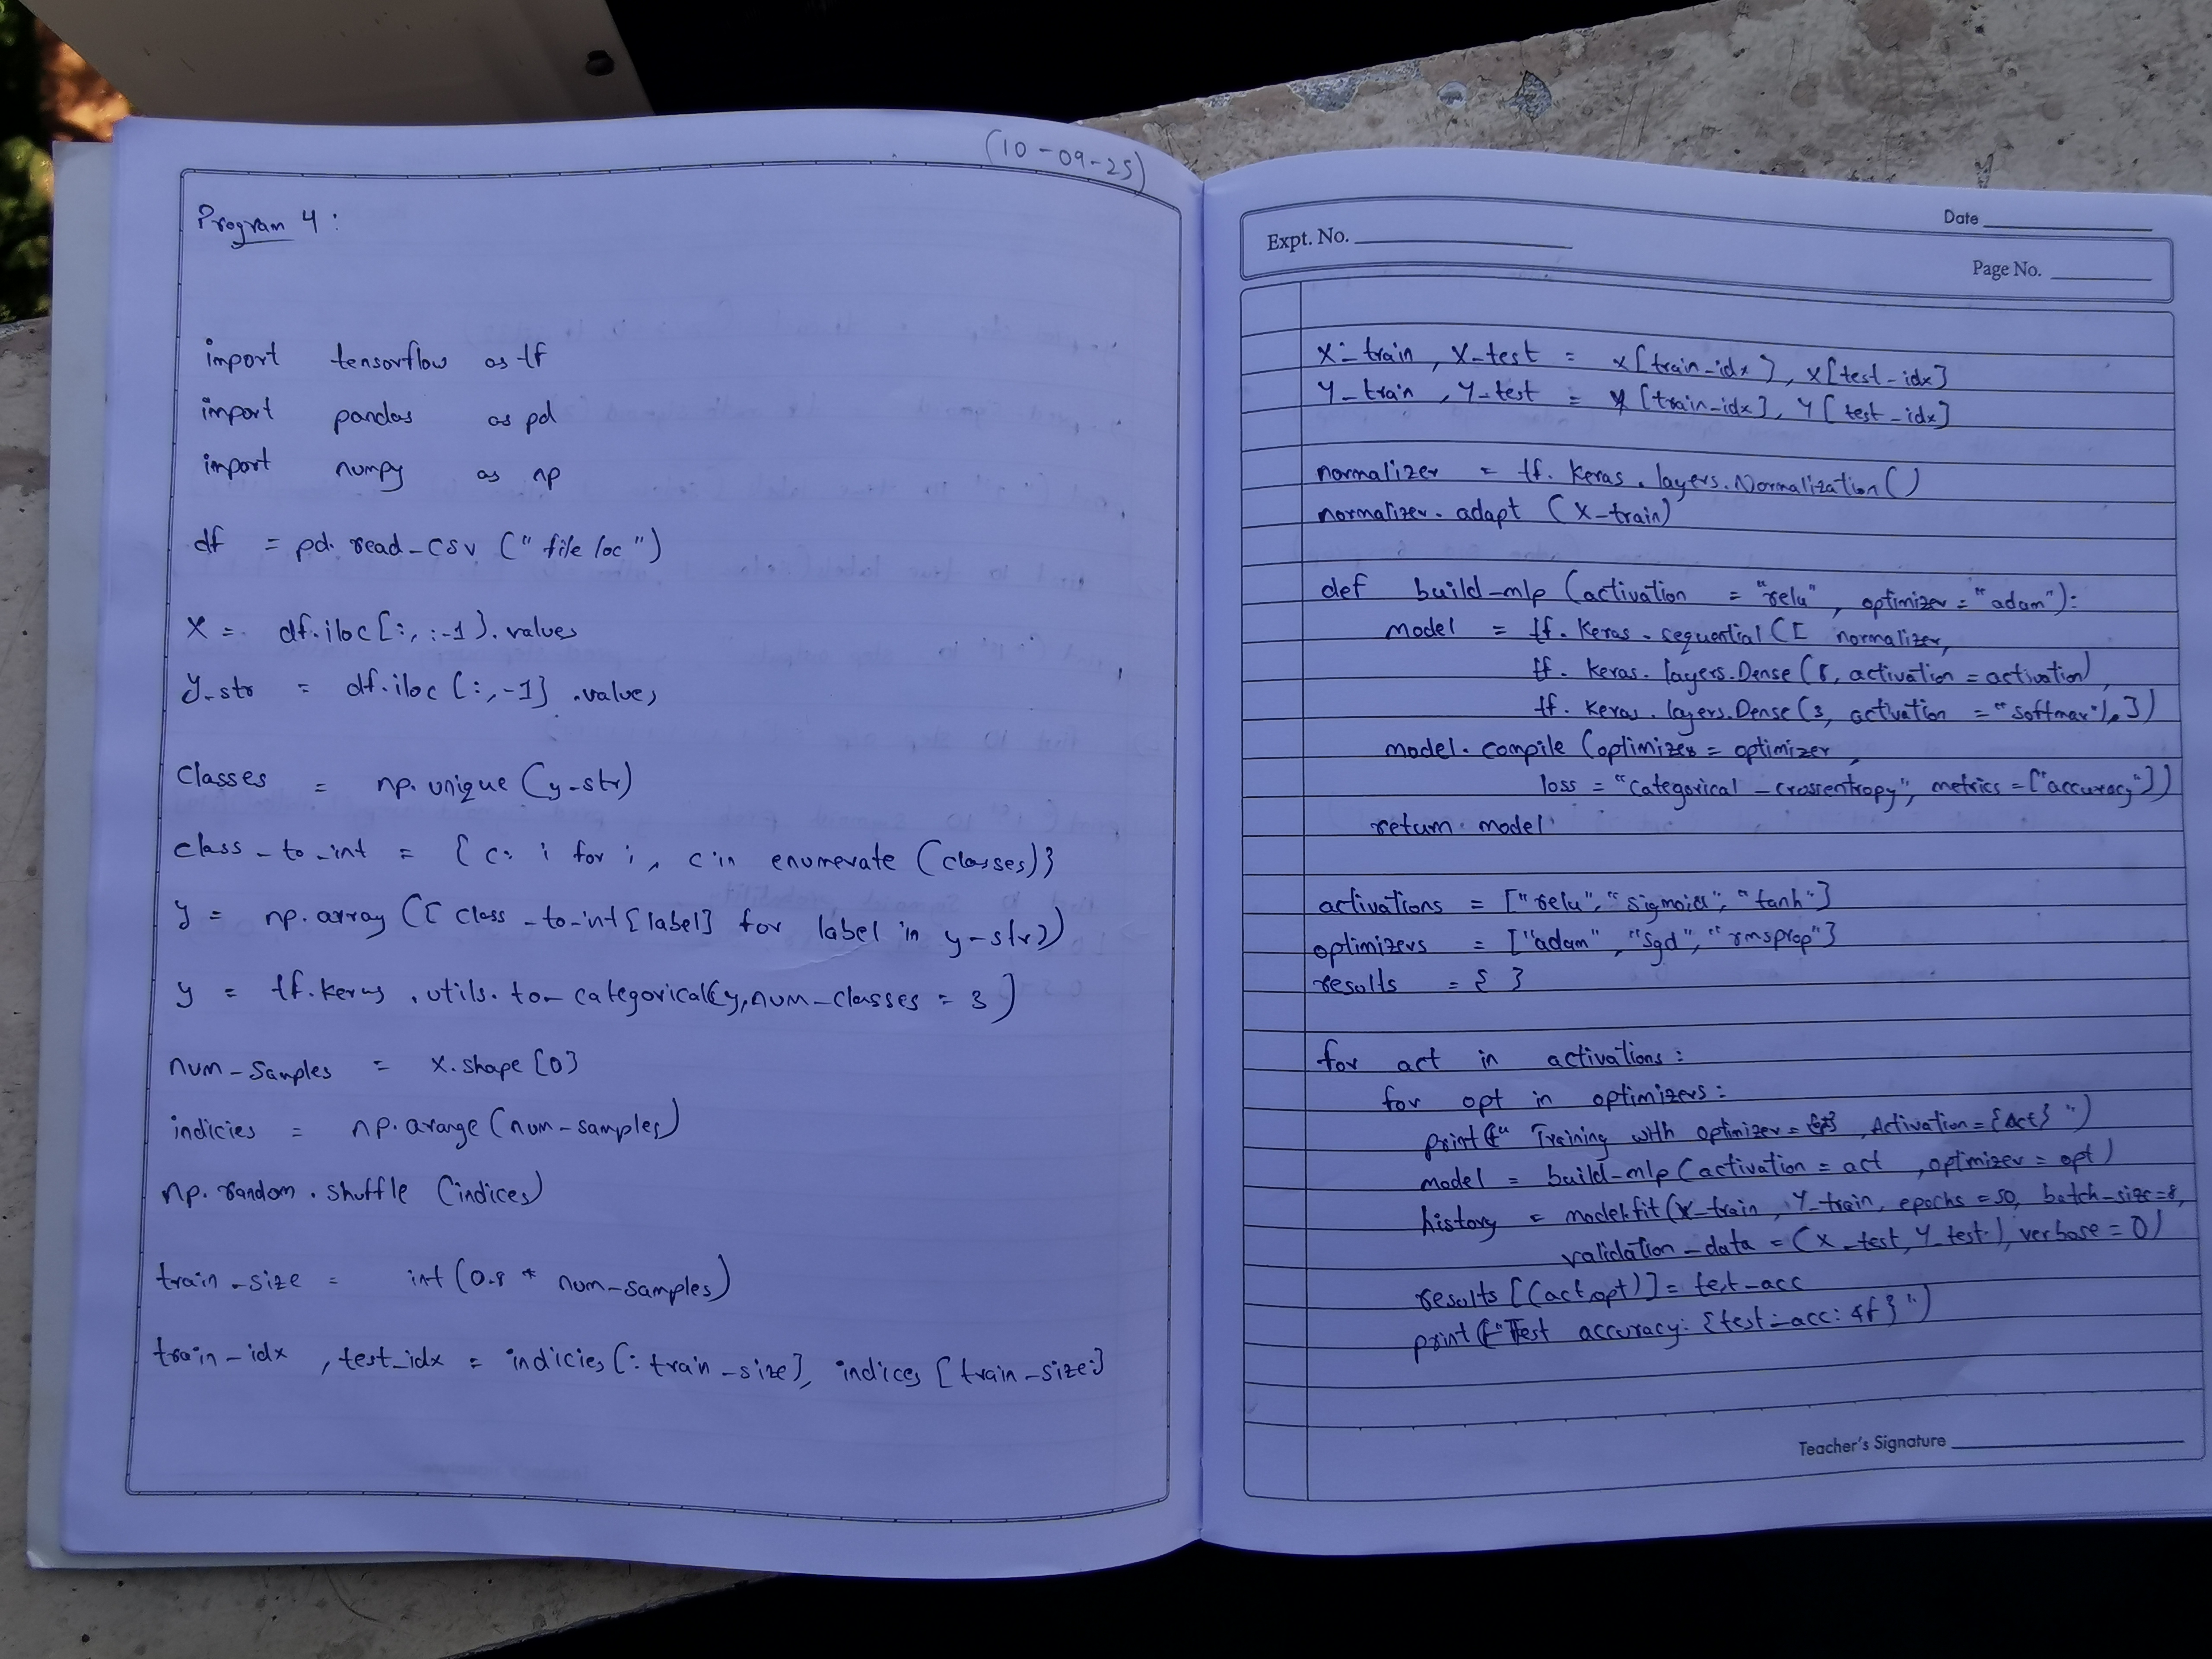 (10-09-25)
Program 4 :
import tensorflow as tf
import pandas as pd
import numpy as np
df = pd. read_csv ("file loc")
X = df.iloc[:, :-1].values
y_str = df.iloc[:, -1].values
classes = np. unique (y_str)
class_to_int = {c: i for i, c in enumerate (classes)}
y = np.array ([class_to_int[label] for label in y_str])
y = tf.keras.utils.to_categorical(y, num_classes = 3)
num_samples = X.shape[0]
indicies = np.arange(num_samples)
np.random.shuffle (indices)
train_size = int(0.8 * num_samples)
train_idx, test_idx = indicies[:train_size], indices[train_size:]
Date
Expt. No.
Page No.
X_train, X_test = X[train_idx], X[test_idx]
Y_train, Y_test = y[train_idx], Y[test_idx]
normalizer = tf.keras.layers.Normalization()
normalizer.adapt (X_train)
def build_mlp (activation = "relu", optimizer = "adam"):
model = tf.keras.sequential([ normalizer,
tf.keras.layers.Dense(8, activation = activation),
tf.keras.layers.Dense(3, activation = "softmax"), ])
model.compile (optimizer = optimizer,
loss = "categorical_crossentropy", metrics = ["accuracy"])
return model
activations = ["relu", "sigmoid", "tanh"]
optimizers = ["adam", "sgd", "rmsprop"]
results = { }
for act in activations:
for opt in optimizers:
print(f" Training with optimizer = {opt}, Activation = {Act} ")
model = build_mlp (activation = act, optimizer = opt)
history = model.fit(X_train, Y_train, epochs = 50, batch_size=8,
validation_data = (X_test, Y_test), verbose = 0)
results [(act,opt)] = test_acc
print(f"Test accuracy: {test_acc: 4f} ")
Teacher's Signature